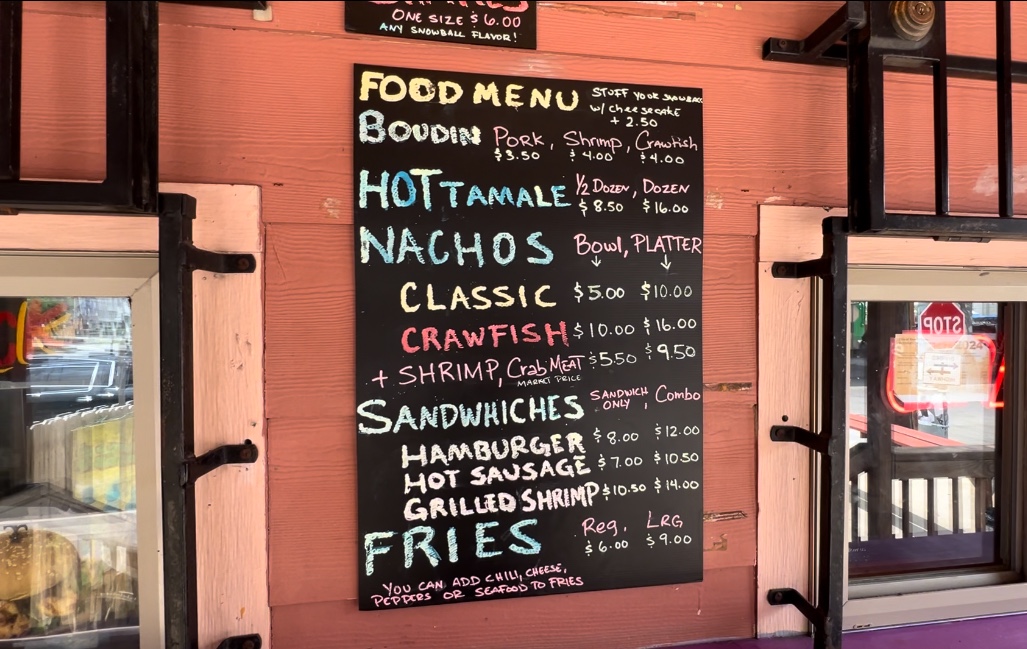 ONE SIZE $6.00
ANY SNOWBALL FLAVOR!
FOOD MENU
STUFF YOUR SNOWBALL
w/ cheesecake
+ 2.50
BOUDIN PORK, Shrimp, Crawfish
$3.50 $4.00 $4.00
HOT TAMALE 1/2 DOZEN, DOZEN
$8.50 $16.00
NACHOS Bowl, PLATTER
CLASSIC $5.00 $10.00
CRAWFISH $10.00 $16.00
+ SHRIMP, Crab MEAT $5.50 $9.50
MARKET PRICE
SANDWHICHES SANDWICH ONLY, Combo
HAMBURGER $8.00 $12.00
HOT SAUSAGE $7.00 $10.50
GRILLED SHRIMP $10.50 $14.00
FRIES Reg, LRG
$6.00 $9.00
YOU CAN ADD CHILI, CHEESE,
PEPPERS OR SEAFOOD TO FRIES
STOP